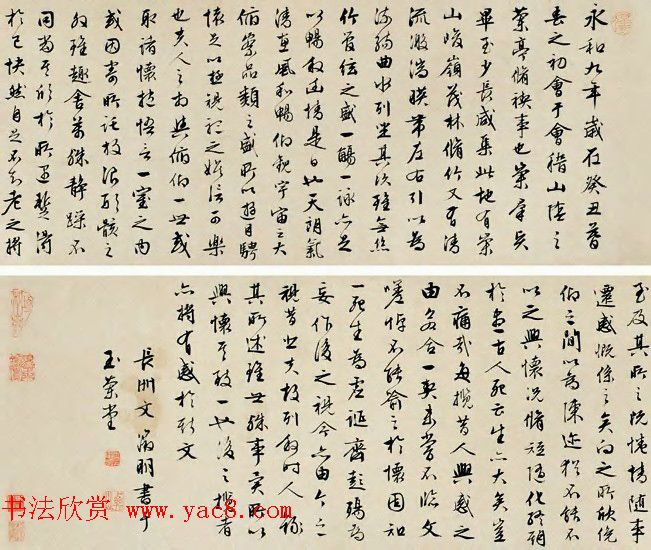 永和九年歲在癸丑暮
春之初會于會稽山陰之
蘭亭脩禊事也羣賢
畢至少長咸集此地有崇
山峻嶺茂林脩竹又有清
流激湍暎帶左右引以為
流觴曲水列坐其次雖無絲
竹管弦之盛一觴一詠亦足
以暢敘幽情是日也天朗氣
清惠風和暢仰觀宇宙之大
俯察品類之盛所以遊目騁
懷足以極視聽之娛信可樂
也夫人之相與俯仰一世或
取諸懷抱悟言一室之內
或因寄所託放浪形骸之
外雖趣舍萬殊靜躁不
同當其欣於所遇蹔得
於己快然自足不知老之將
至及其所之既惓情隨事
遷感慨係之矣向之所欣俛
仰之間以為陳迹猶不能不
以之興懷況脩短隨化終期
於盡古人云死生亦大矣豈
不痛哉每攬昔人興感之
由若合一契未嘗不臨文
嗟悼不能喻之於懷固知
一死生為虛誕齊彭殤為
妄作後之視今亦由今之
視昔悲夫故列敘時人錄
其所述雖世殊事異所以
興懷其致一也後之攬者
亦將有感於斯文
長洲文徵明書于
玉蘭堂
书法欣赏 www.yac8.com